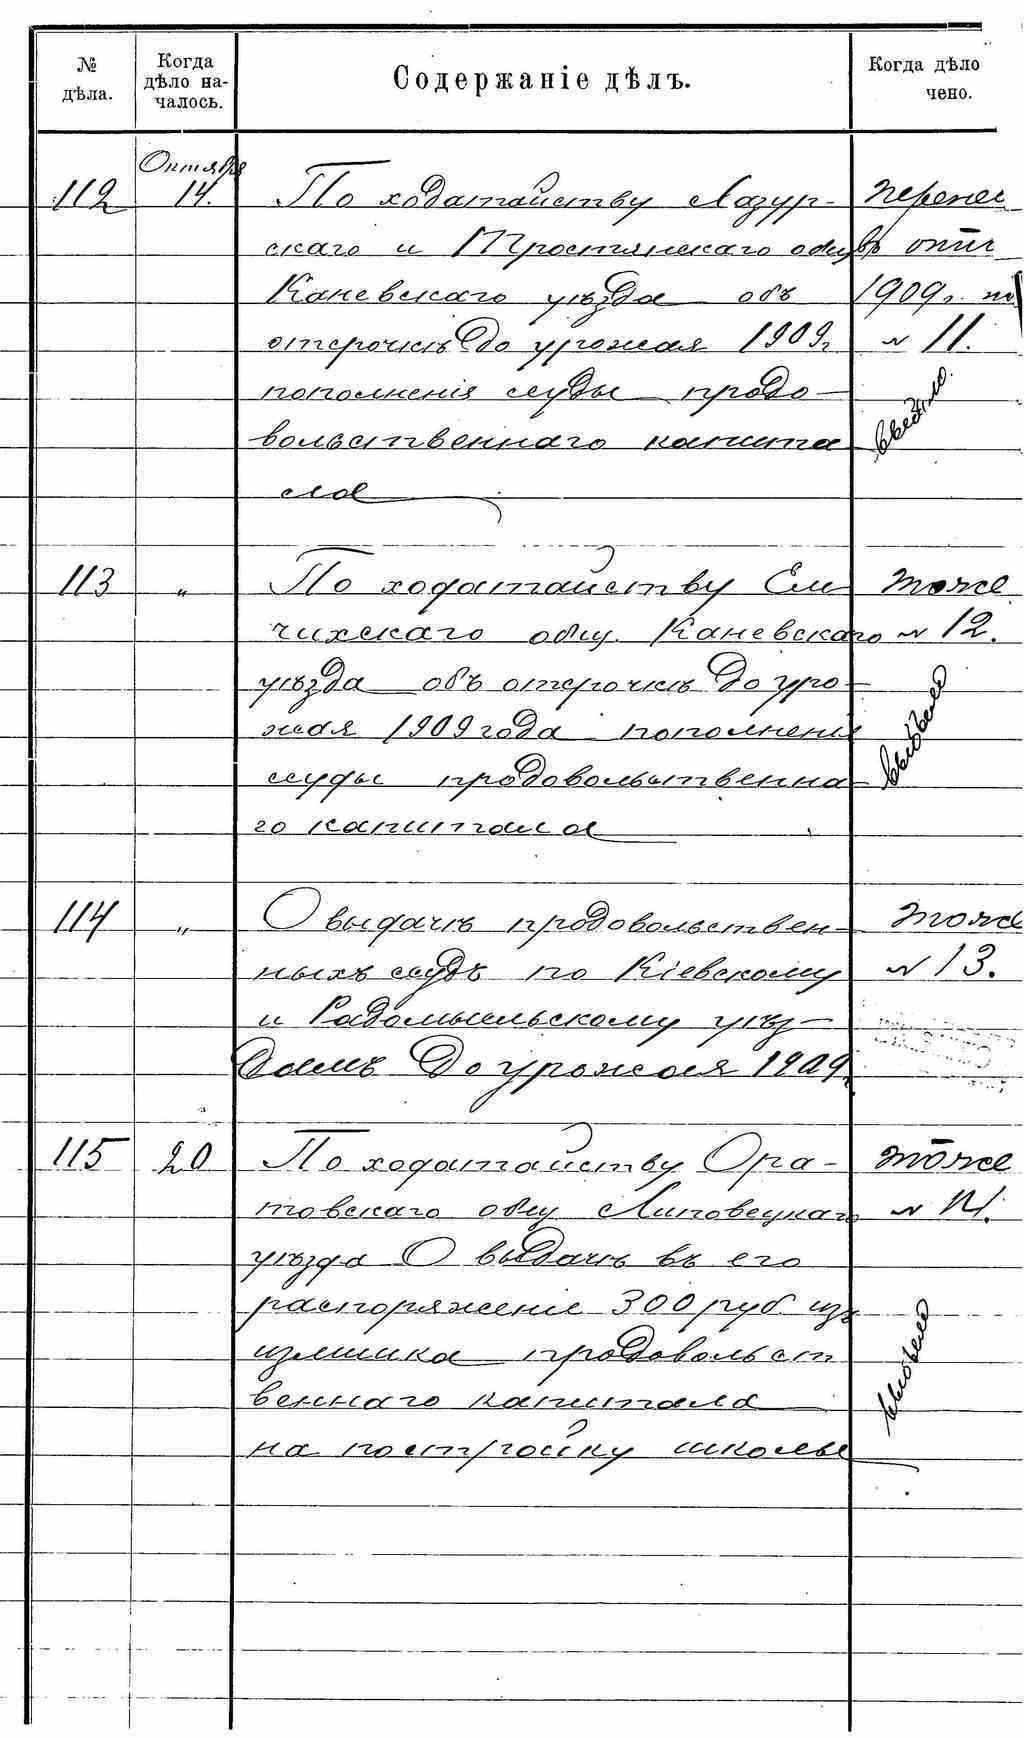 № дѣла.
Когда дѣло на-
чалось.
Содержаніе дѣлъ.
Когда дѣло
чено.
Октября
112 14. По ходатайству Лазур- перенес
скаго и Тростянскаго общ въ опис
Каневскаго уѣзда объ 1909 г. по
отсрочкѣ до урожая 1909 г № 11.
пополненія ссуды продо-
вольственнаго капита
ла
113 „ По ходатайству Ем тоже
чихскаго общ. Каневскаго № 12.
уѣзда объ отсрочкѣ до уро-
жая 1909 года пополненія
ссуды продовольственна-
го капитала
114 „ О выдачѣ продовольствен- тоже
ныхъ ссудъ по Кіевскому № 13.
и Радомысльскому уѣз-
дамъ до урожая 1909 г.
115 20 По ходатайству Ора- тоже
товскаго общ Липовецкаго № 14.
уѣзда О выдачѣ въ его
распоряженіе 300 руб изъ
излишка продовольст
веннаго капитала
на постройку школы